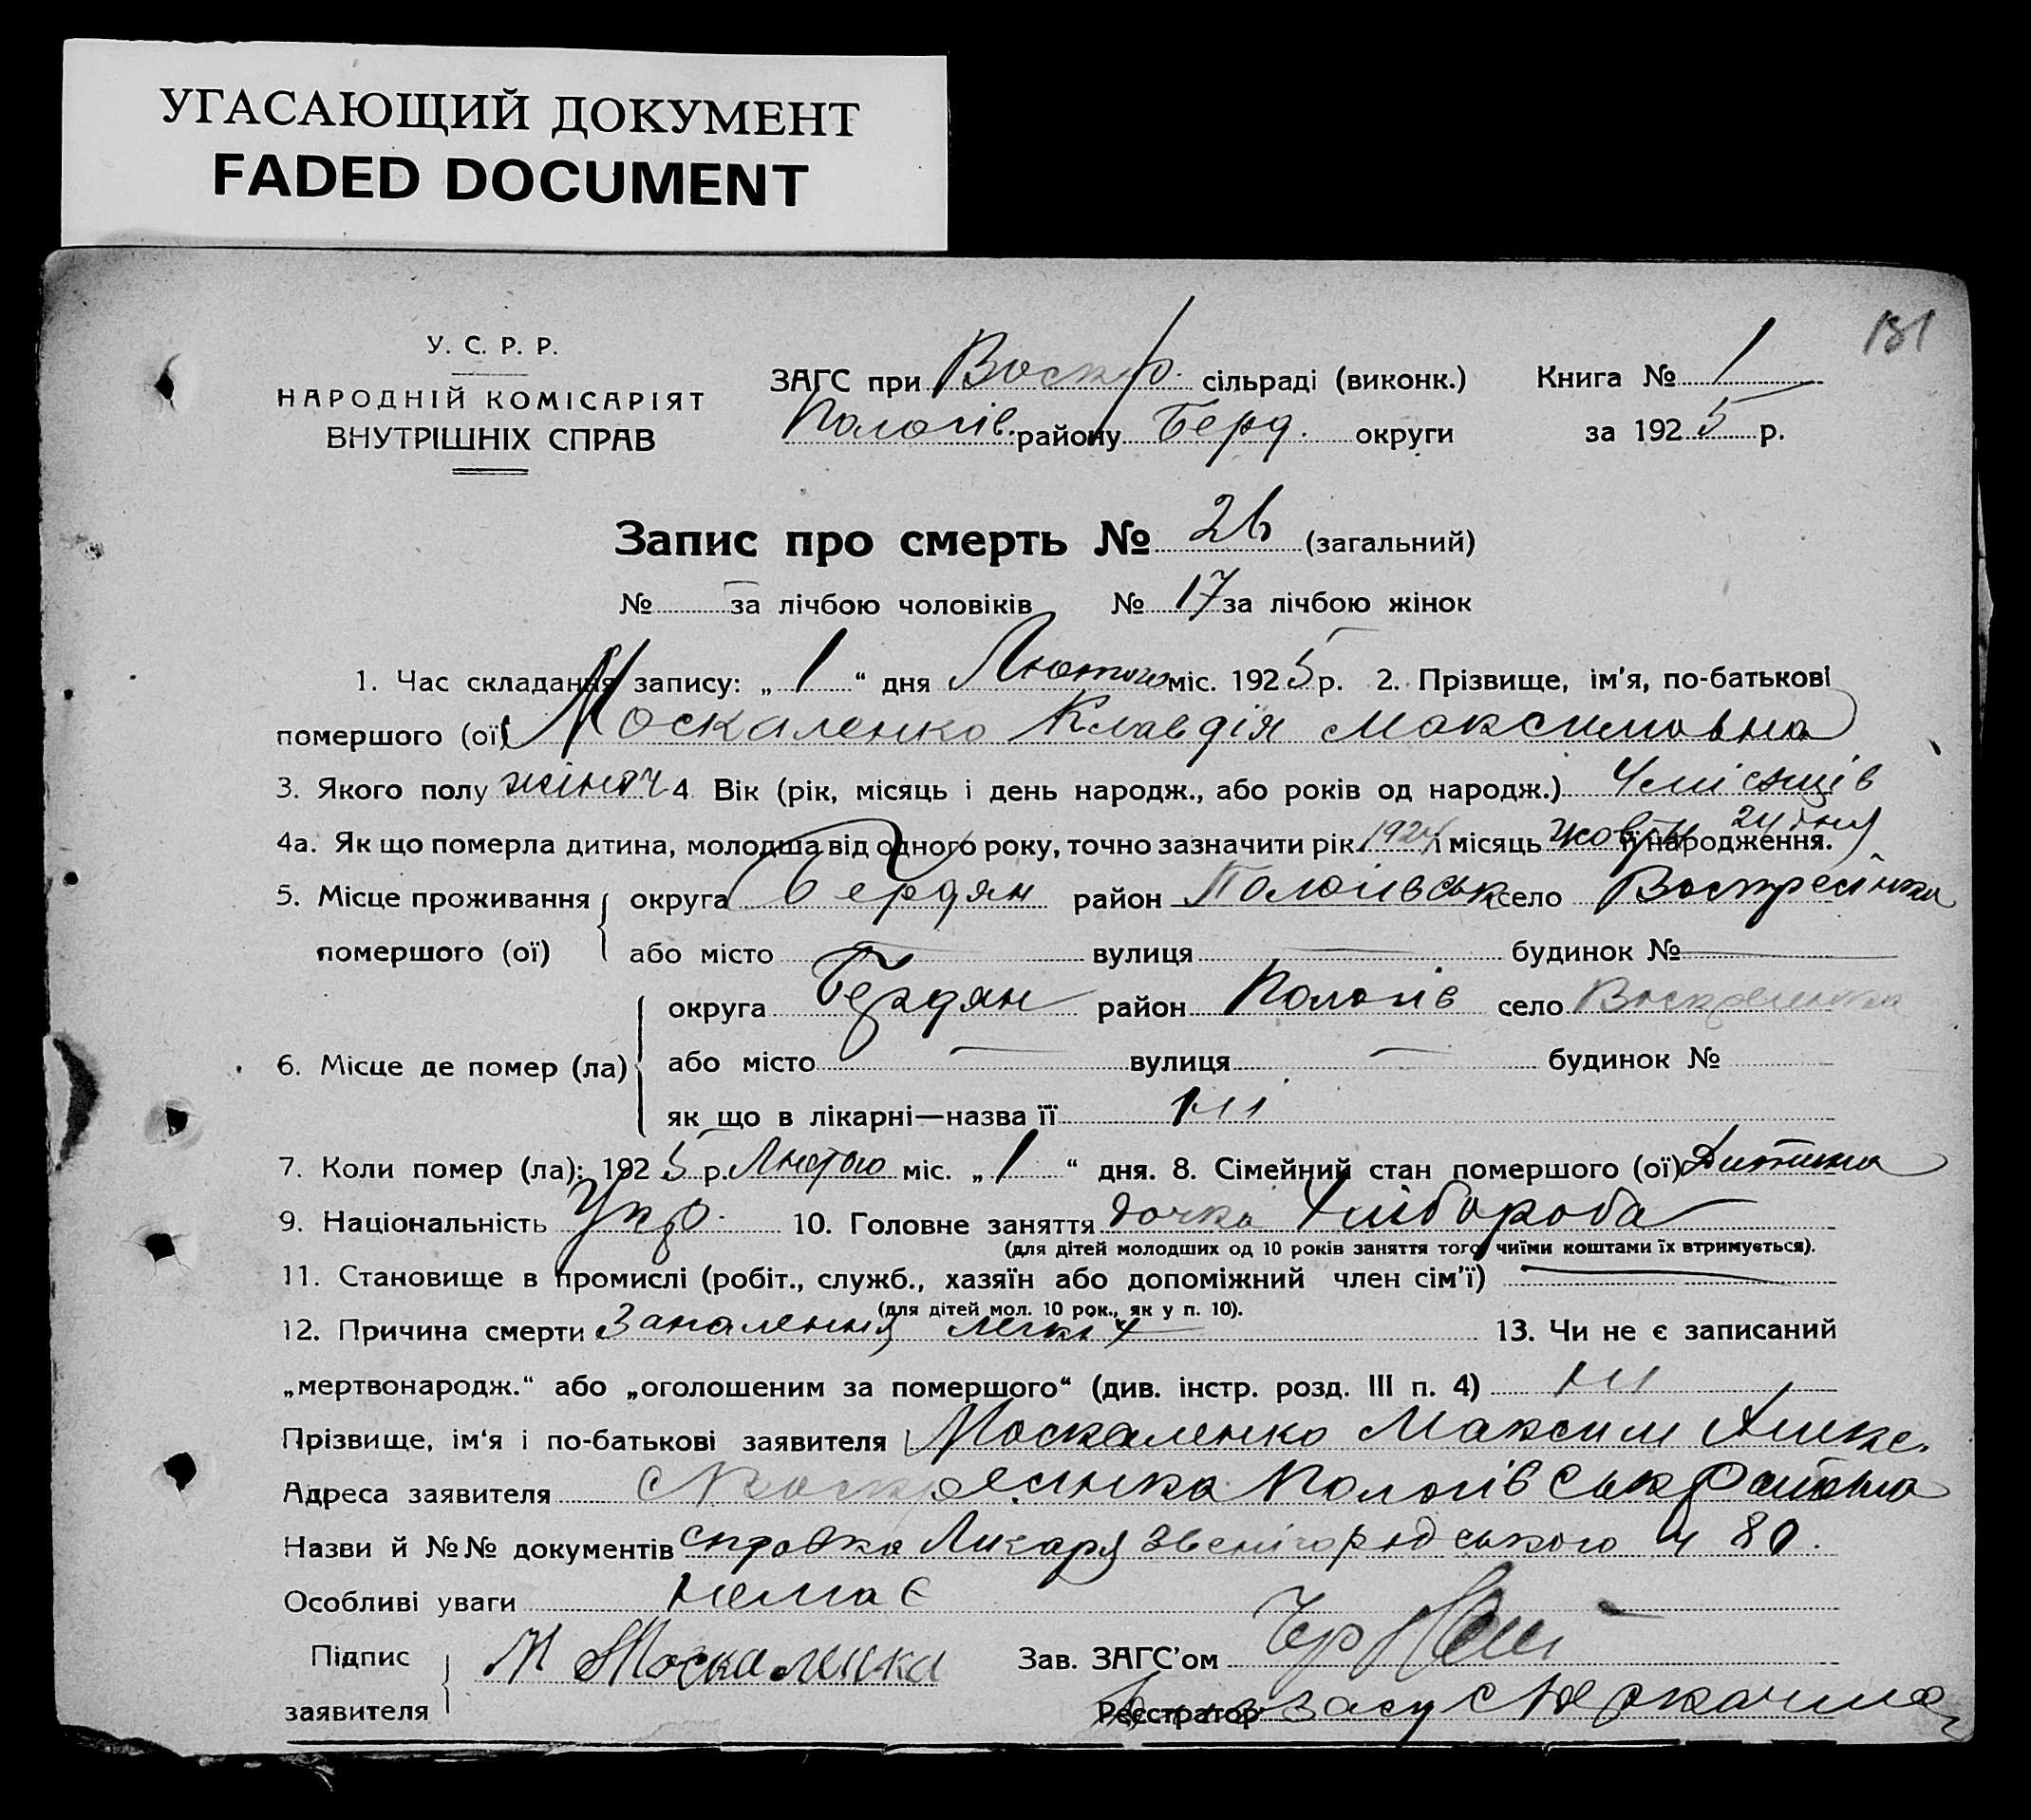 УГАСАЮЩИЙ ДОКУМЕНТ
FADED DOCUMENT
181
У. С. Р. Р.
НАРОДНІЙ КОМІСАРІЯТ
ВНУТРІШНІХ СПРАВ
ЗАГС при Воскр. сільраді (виконк.)
Пологів. району Берд. округи
Книга № 1
за 1925 р.
Запис про смерть № 26 (загальний)
№ — за лічбою чоловіків № 17 за лічбою жінок
1. Час складання запису: „ 1 “ дня Лютого міс. 1925 р. 2. Прізвище, ім'я, по-батькові
помершого (ої) Москаленко Клавдія Максимовна
3. Якого полу жіноч 4 Вік (рік, місяць і день народж., або років од народж.) 4 місяців
4а. Як що померла дитина, молодша від одного року, точно зазначити рік 1924 і місяць жовтн 24 дня її народження.
5. Місце проживання помершого (ої) округа Бердян район Пологівськ село Воскресінка
або місто — вулиця — будинок № —
6. Місце де помер (ла) округа Бердян район Пологів село Воскресенка
або місто — вулиця — будинок №
як що в лікарні—назва її ні
7. Коли помер (ла): 1925 р. Лютого міс. „ 1 “ дня. 8. Сімейний стан помершого (ої) Дитина
9. Національність Укр. 10. Головне заняття дочка хлібороба
(для дітей молодших од 10 років заняття того, чиїми коштами їх втримується).
11. Становище в промислі (робіт., служб., хазяїн або допоміжний член сім'ї) —
(для дітей мол. 10 рок., як у п. 10).
12. Причина смерти Запалення легких 13. Чи не є записаний
„мертвонародж.“ або „оголошеним за помершого“ (див. інстр. розд. III п. 4) ні
Прізвище, ім'я і по-батькові заявителя Москаленко Максим Алекс.
Адреса заявителя с Воскресінка Пологівськ района
Назви й №№ документів справка Ликаря Звенігородського ч 80.
Особливі уваги немає
Підпис заявителя М Москаленка
Зав. ЗАГС'ом
Реєстратор